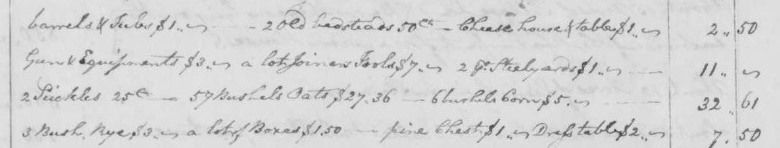 barrels & Tubs $1.,~ — 2 Old bedsteads 50 cts — Cheese house & table $1.,~ 2., 50
Gun & Equipments $3.,~ a lot Joiners Tools $7.,~ 2 pr Steelyards $1.,~ — 11.,~
2 Sickles 25 c — 57 Bushels Oats $27.36 — 6 bushels Corn $5.,~ — 32., 61
3 Bush. Rye $3.,~ a lot of Boxes $1.50 — pine Chest $1.,~ Dress table $2.,~ 7. 50